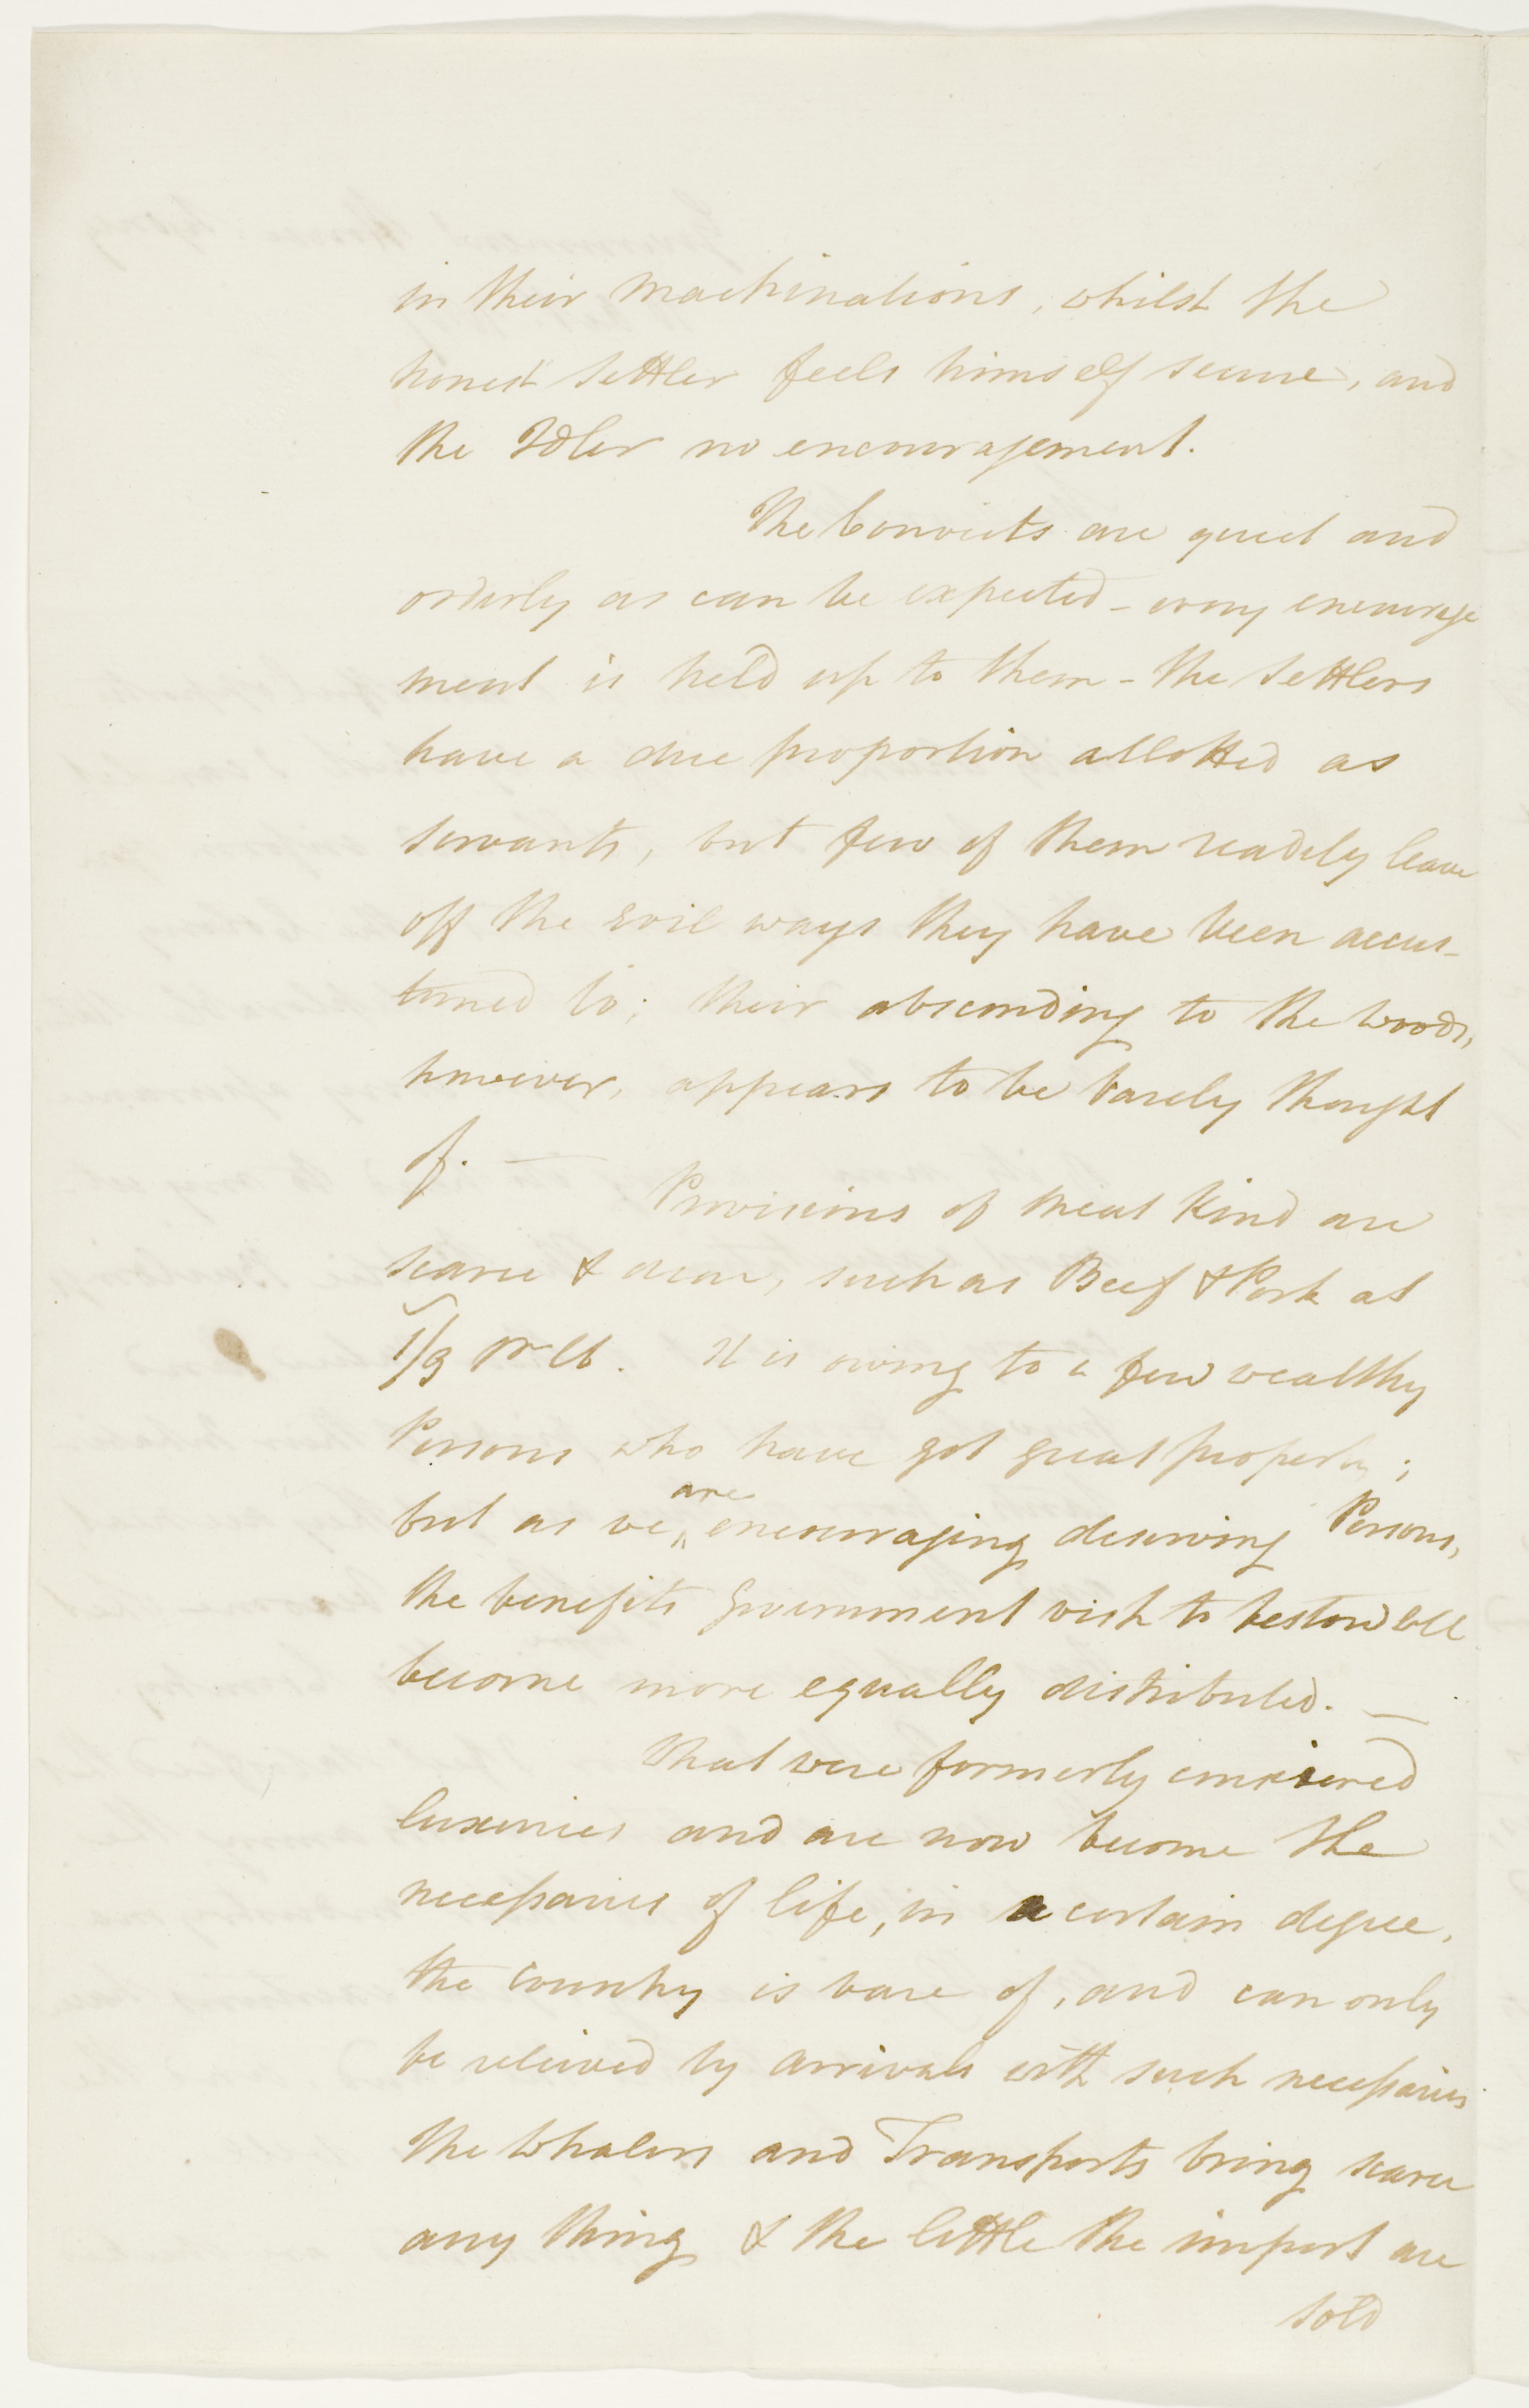 in their machinations, whilst the
honest Settler feels himself secure, and
the Idler no encouragement.
The Convicts are quiet and
orderly as can be expected – every encourage
ment is held up to them – the Settlers
have a due proportion allotted as
servants, but few of them readily leave
off the evil ways they have been accus-
tomed to; their absconding to the woods,
however, appears to be barely thought
of. —
Provisions of meat kind are
scarce & dear, such as Beef & Pork at
1/3 pr lb. It is owing to a few wealthy
Persons who have got great property;
but as we are encouraging deserving Persons,
the benefits Government wish to bestow will
become more equally distributed. —
What were formerly considered
luxuries and are now become the
necessaries of life, in a certain degree,
the country is bare of, and can only
be relieved by arrivals with such necessaries
The Whalers and Transports bring scarce
any thing & the little the import are
sold